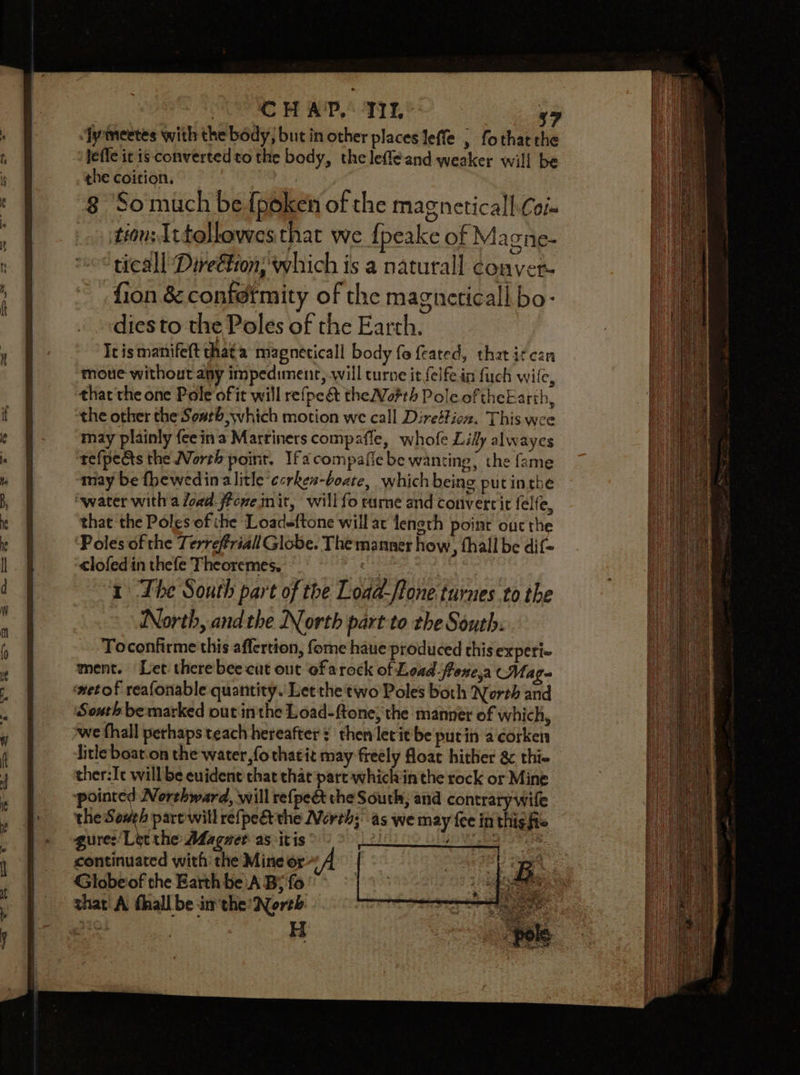 CHAP. III. 57
ly meetes with the body, but in other places leſſe , ſo that the
leſſe it is converted to the body, the leſſe and weaker will be
the coition.
8 So much be ſpoken of the magneticall Coi-
tion: It followes that we ſpeake of Magne-
ticall Direction, which is a naturall conver-
ſion & conformity of the magneticall bo-
dies to the Poles of the Earth.
It is manifeſt that a magneticall body ſo ſeated, that it can
moue without any impediment, will turne it ſelfe in ſuch wiſe,
that the one Pole of it will reſpect the North Pole of the Earth,
the other the South, which motion we call Direction. This wee
may plainly ſee in a Martiners compaſſe, whoſe Lilly alwayes
reſpects the North point. If a compaſſe be wanting, the ſame
may be ſhewed in a litle corken-boate, which being put in the
water with a load-ſtone in it, will ſo turne and convert it ſelfe,
that the Poles of the Load-ſtone will at length point out the
Poles of the Terreſtriall Globe. The manner how, ſhall be diſ-
cloſed in theſe Theoremes.
1 The South part of the Load-ſtone turnes to the
North, and the North part to the South.
To confirme this aſſertion, ſome haue produced this experi-
ment. Let there bee cut out of a rock of Load-ſtone, a Mag-
net of reaſonable quantity. Let the two Poles both North and
South be marked out in the Load-ſtone, the manner of which,
we ſhall perhaps teach hereafter : then let it be put in a corken
litle boat on the water, ſo that it may freely float hither & thi-
ther: It will be euident that that part which in the rock or Mine
pointed Northward, will reſpect the South, and contrarywiſe
the South part will reſpect the North; as we may ſee in this fi-
gure: Let the Magnet as it is
continuated with the Mine or A
Globe of the Earth be A B, ſo B.
that A ſhall be in the North
H pole